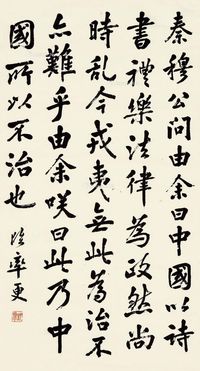 秦穆公問由余曰中國以詩
書禮樂法律為政然尚
時亂今戎夷無此為治不
亦難乎由余咲曰此乃中
國所以不治也 臨率更